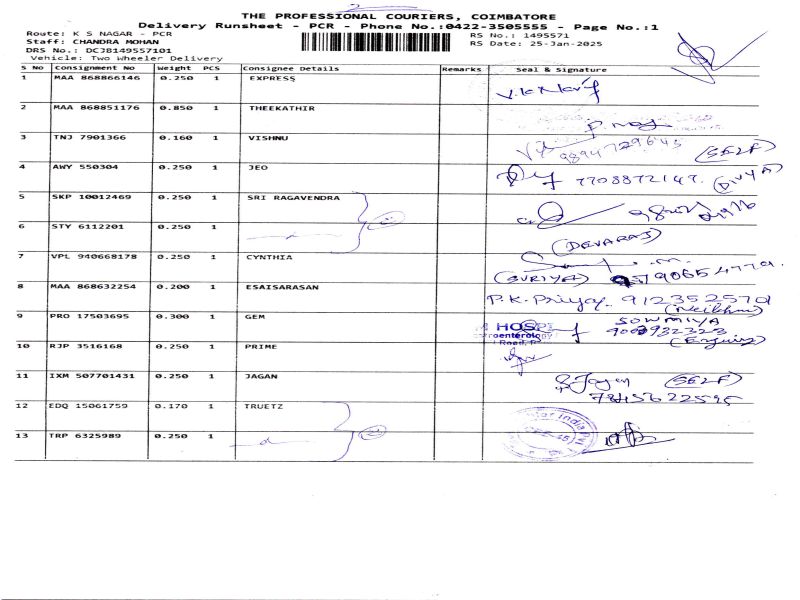 THE PROFESSIONAL COURIERS, COIMBATORE
Delivery Runsheet - PCR - Phone No.:0422-3505555 - Page No.:1
Route: K S NAGAR - PCR
RS No.: 1495571
Staff: CHANDRA MOHAN
RS Date: 25-Jan-2025
DRS No.: DCJ8149557101
Vehicle: Two Wheeler Delivery
S No Consignment No Weight PCS Consignee Details Remarks Seal & Signature
1 MAA 868866146 0.250 1 EXPRESS
2 MAA 868851176 0.850 1 THEEKATHIR
3 TNJ 7901366 0.160 1 VISHNU 9894729645 (SELF)
4 AWY 550304 0.250 1 JEO 7708872147. (DIVYA)
5 SKP 10012469 0.250 1 SRI RAGAVENDRA
6 STY 6112201 0.250 1 (DEVARAJ)
7 VPL 940668178 0.250 1 CYNTHIA (SURIYA)
8 MAA 868632254 0.200 1 ESAISARASAN P.K. Priya. 9123525701
9 PRO 17503695 0.300 1 GEM SOWMIYA
HOSPI
10 RJP 3516168 0.250 1 PRIME
11 IXM 507701431 0.250 1 JAGAN S. Jagan (SELF)
7845622595
12 EDQ 15061759 0.170 1 TRUETZ
13 TRP 6325989 0.250 1